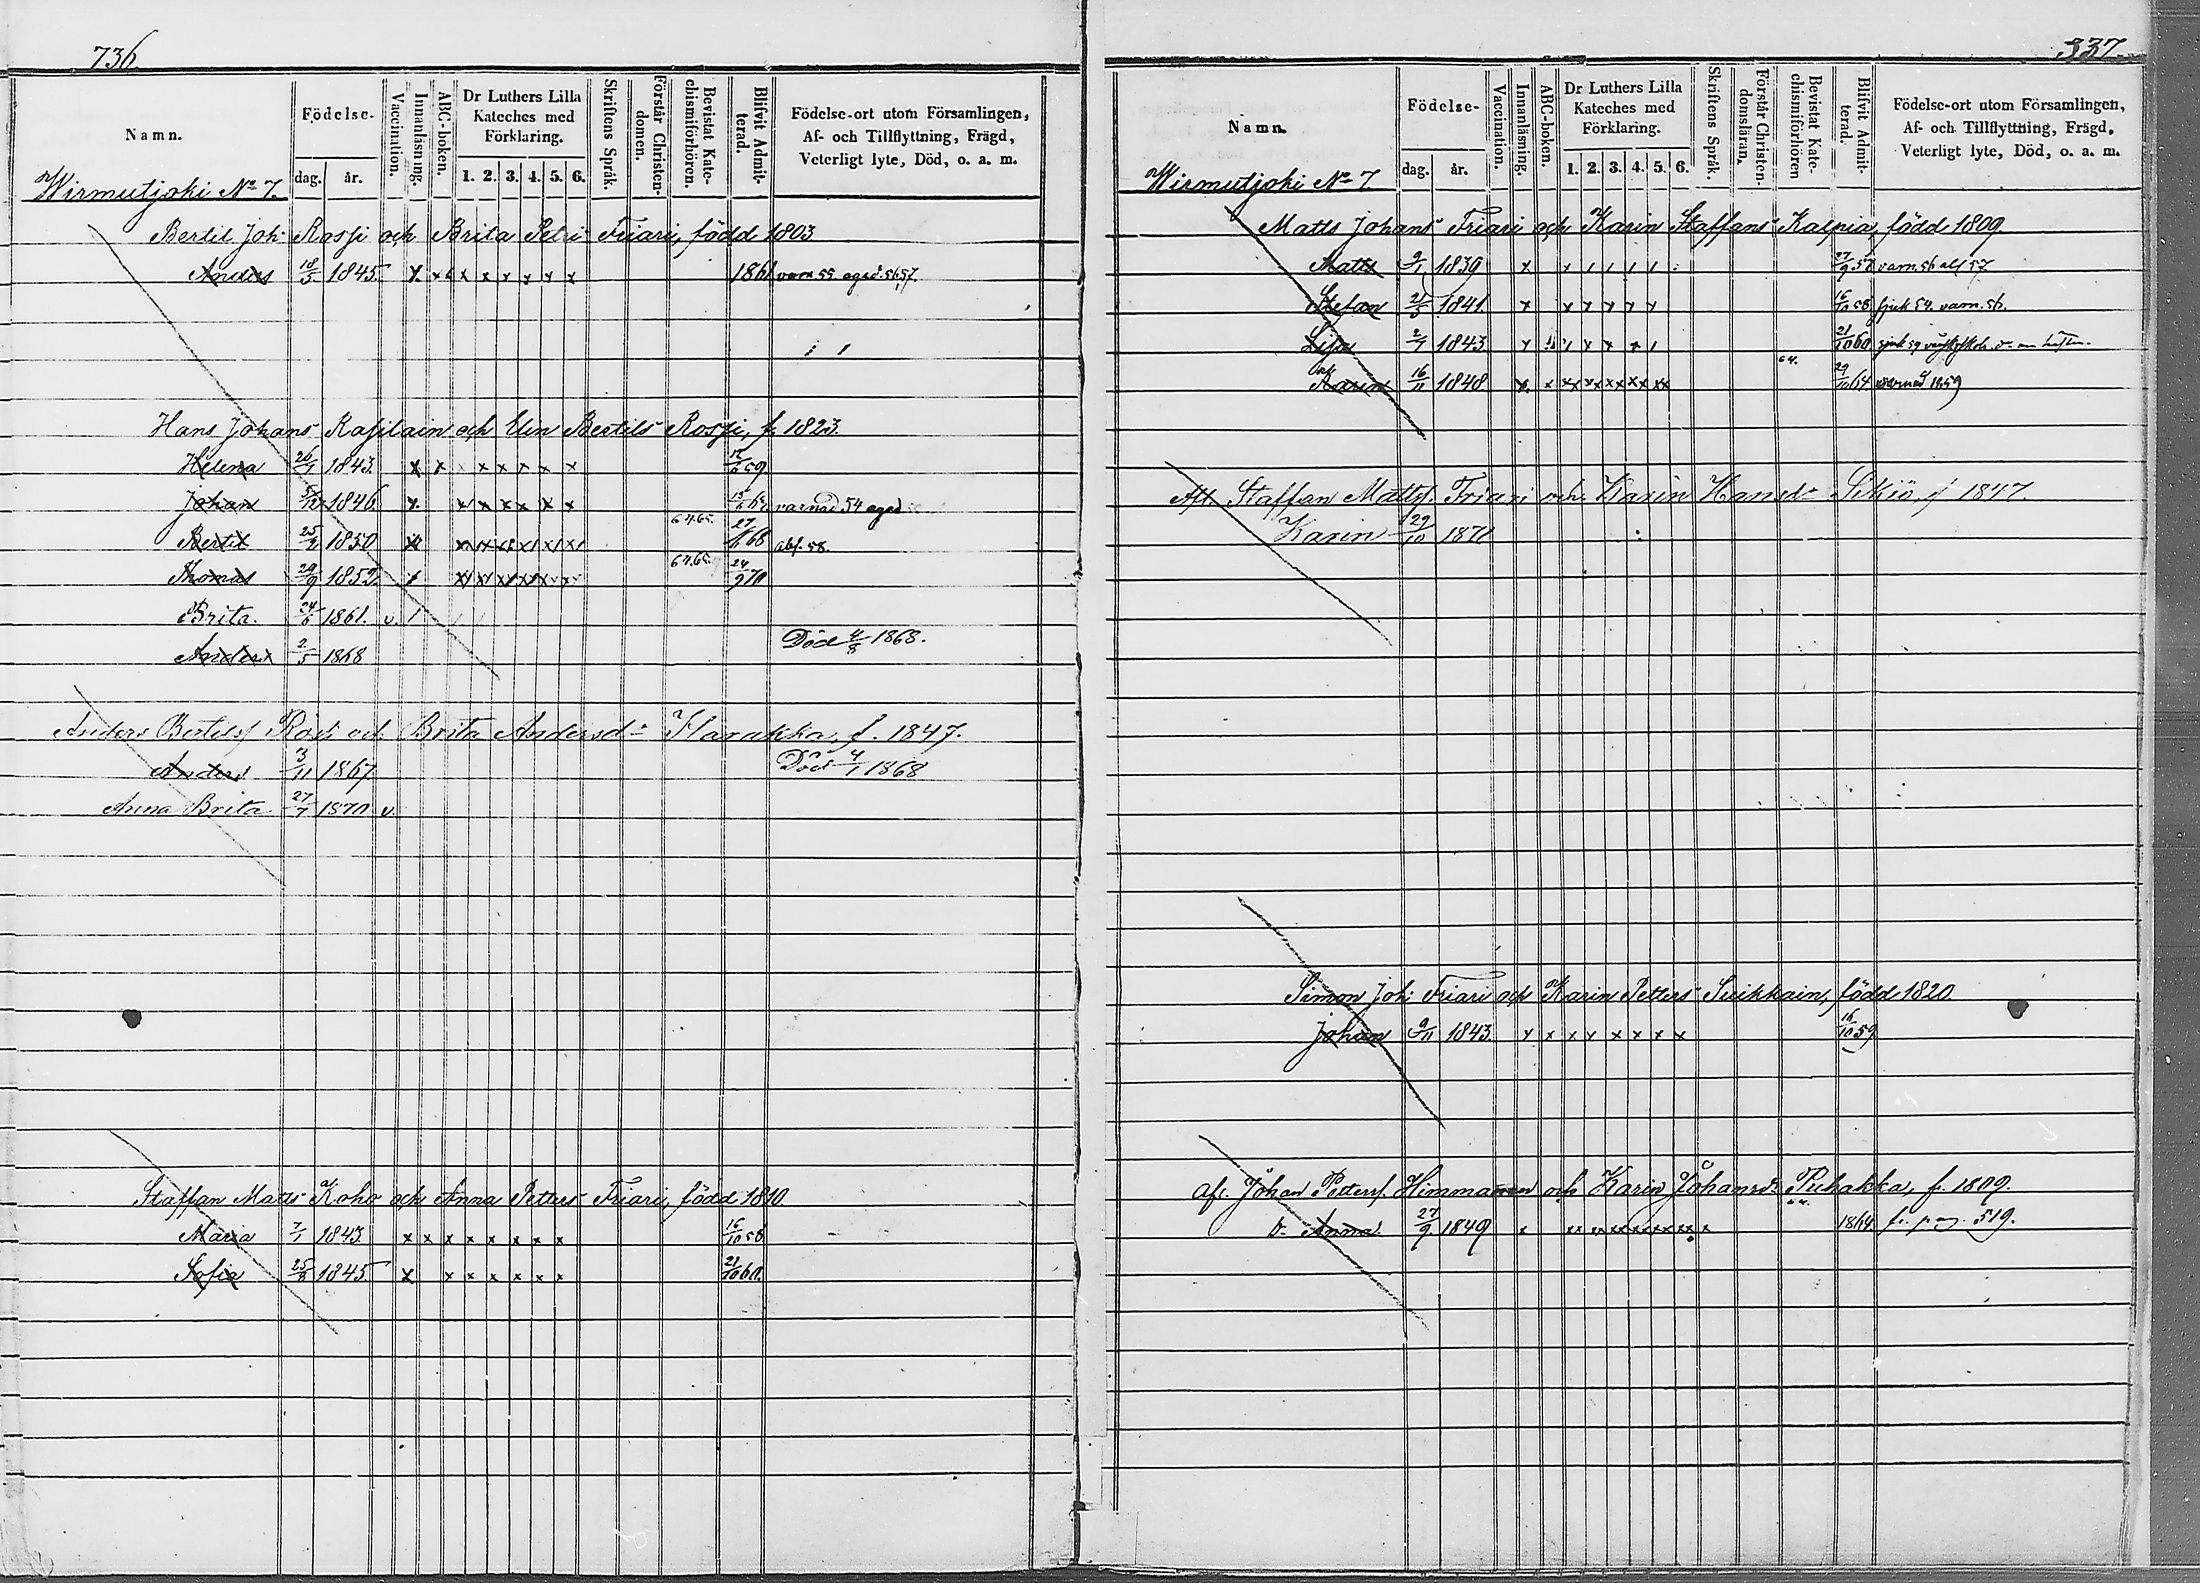 736
Namn.
Födelse-
dag.
år.
Vaccination.
Innanläsning.
ABC-boken.
Dr Luthers Lilla
Kateches med
Förklaring.
1. 2. 3. 4. 5. 6.
Skriftens Språk.
Förstår Christen-
domen.
Bevistat Kate-
chismiförhören.
Blifvit Admit-
terad.
Födelse-ort utom Församlingen,
Af- och Tillflyttning, Frägd,
Veterligt lyte, Död, o. a. m.
Wirmutjoki No 7.
Bertil Joh: och Brita Petri Friari, född 1803
Anders 18/5 1845. x x x x x x x x 1861 varn 55 agad 56,57.
Hans Johans och Elin Bertils f. 1823.
Helena 26/1 1843. x x x x x x x 59
Johan 5/12 1846. x x x x x x x varnad 54 agad
64.65.
Bertil 1850 68 abs. 58.
67.65.
Thomas 29/9 1852 24/9 70
Brita. 24/6 1861. v. /
Anders 2/5 1868 Död 4/8 1868.
Anders och Brita Andersd:r Harakka, f. 1847.
Anders 3/11 1867 Död 4/1 1868
Anna Brita 27/7 1870 v.
Staffan Matts Koho och Anna Petters Friari, född 1810.
Maria 7/1 1843. x x x x x x x x 16/10 58
Sofia 25/8 1845. x x x x x x x 21/10 60.
337.
Namn.
Födelse-
dag.
år.
Vaccination.
Innanläsning.
ABC-boken.
Dr Luthers Lilla
Kateches med
Förklaring.
1. 2. 3. 4. 5. 6.
Skriftens Språk.
Förstår Christen-
domsläran.
Bevistat Kate-
chismiförhören
Blifvit Admit-
terad.
Födelse-ort utom Församlingen,
Af- och Tillflyttning, Frägd,
Veterligt lyte, Död, o. a. m.
Wirmutjoki No 7
Matts Johans Friari och Karin Staffans Kalpia, född 1809.
Matts 9/1 1839 27/9 57 varn. 56
Stefan 21/5 1841. x x x x x x 16/10 58 sjuk 54. varn. 56.
Lisa 2/7 1843 21/10 60 sjuk 59
64.
Karin 16/11 1848 29/10 64 varnad 1859
Staffan Matts. Friari och Karin Hansd:r 1847.
Karin 29/10 1871
Simon Joh: Friari och Karin Petters Suikkain, född 1820.
Johan 9/11 1843. x x x x x x x x 16/10 59
Johan Petters. Himmanen och Karin Johansd:r Puhakka, f. 1809.
D. Anna 27/9 1849 1864 fr. pag. 519.